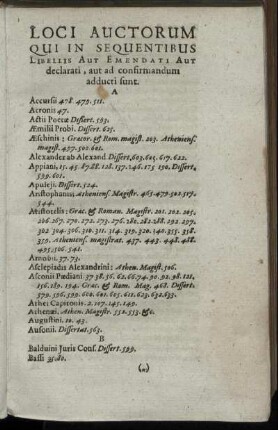 LOCI AUCTORUM
QUI IN SEQUENTIBUS
LIBELLIS AUT EMENDATI AUT
declarati, aut ad confirmandum
adducti sunt.
A
Accursii 478. 479. 511.
Acronis 47.
Actii Poetæ Dissert. 593.
Æmilii Probi. Dissert. 625.
Æschinis; Græcor. & Rom. magist. 203. Atheniens.
magist. 497. 502. 601.
Alexander ab Alexand. Dissert. 603. 605. 617. 622.
Appiani, 15. 45. 87. 88. 128. 137. 146. 175. 190. Dissert,
599. 601.
Apuleji. Dissert. 524.
Aristophanes, Atheniens. Magistr. 465. 479. 502. 517.
544.
Aristotelis; Græc. & Roman. Magistr. 201. 202. 205.
206. 267. 270. 272. 273. 276. 281. 282. 292. 297.
302. 304. 306. 310. 311. 314. 319. 320. 340. 355. 358.
359. Atheniens. magistrat. 437. 443. 448. 488.
495. 506. 541.
Arnobii. 37. 73.
Asclepiadis Alexandrini; Athen. Magist. 506.
Asconii Pædiani 37. 38. 56. 62. 66. 74. 90. 92. 98. 121.
156. 189. 194. Græc. & Rom. Mag. 468. Dissert.
579. 596. 599. 600. 601. 605. 611. 623. 632. 633.
Athei Capitonis. 2. 107. 145. 149.
Athenæi. Athen. Magistr. 552. 553. &c.
Augustini. 10. 43.
Ausonii. Dissertat. 563.
B
Balduini Juris Cons. Dissert. 599.
Bassi 35. 80.
(a)